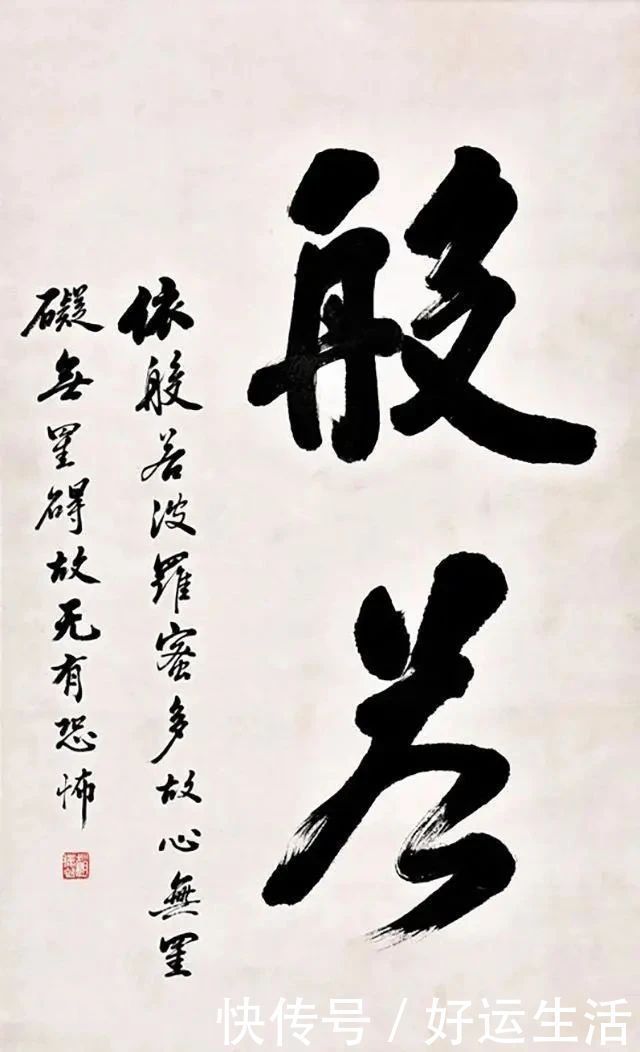 般若
依般若波羅蜜多故心無罣
礙無罣碍故无有恐怖
快传号/好运生活